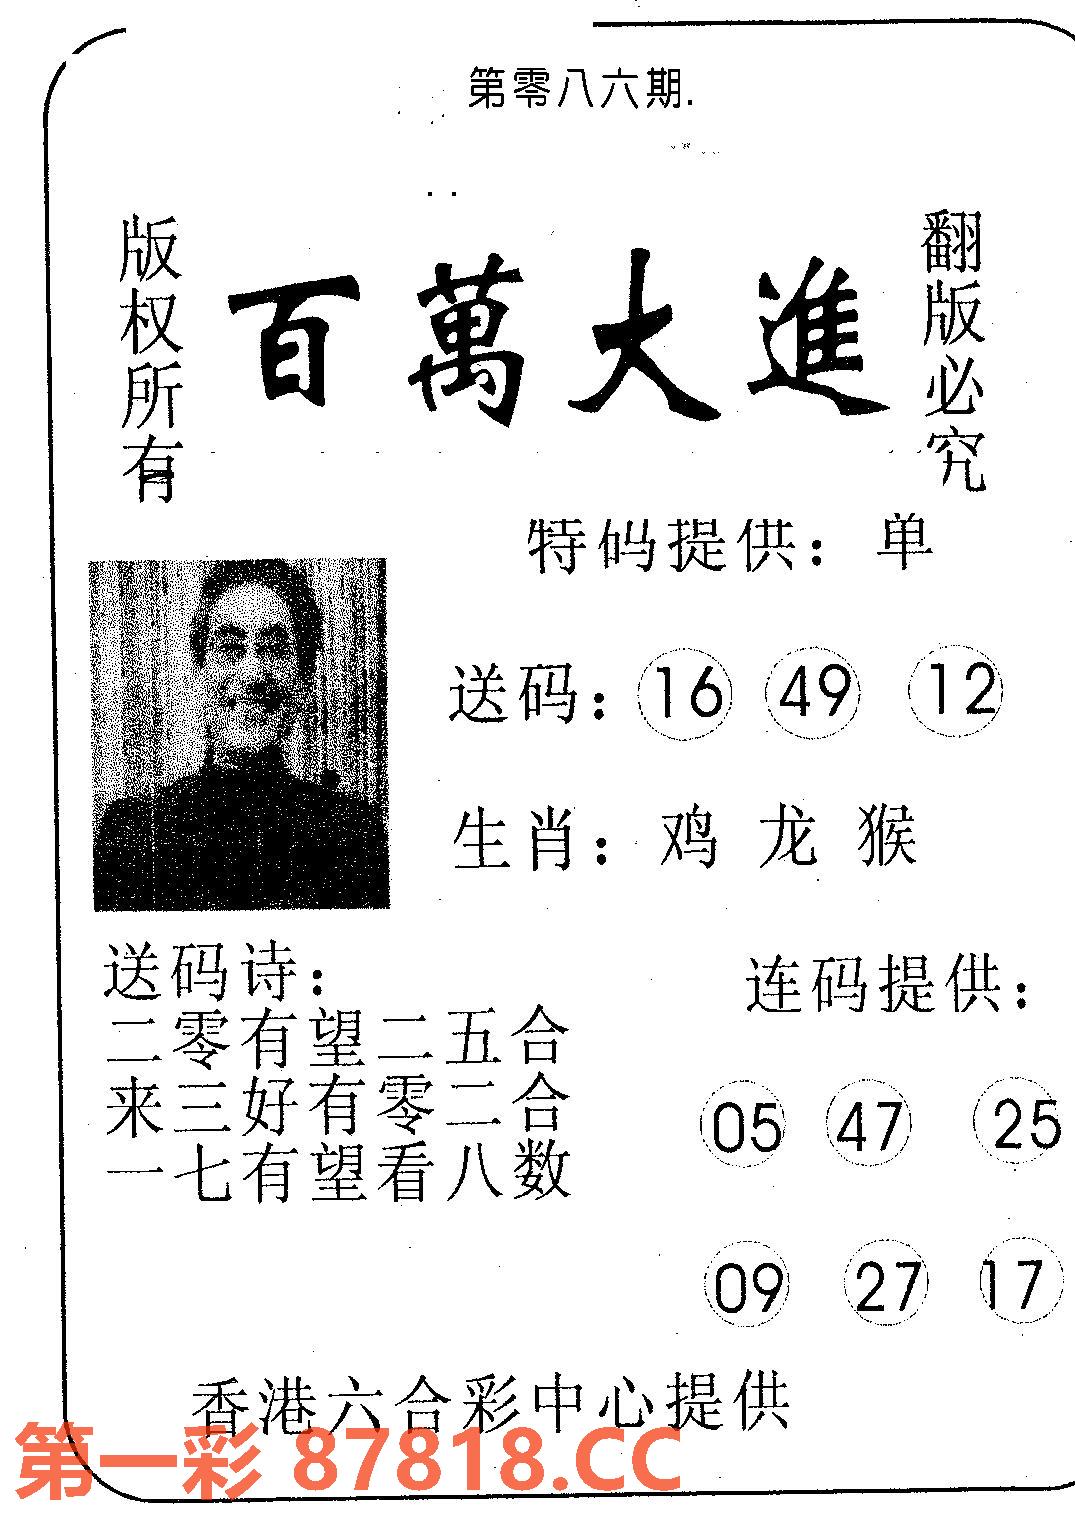 第零八六期.
版权所有
百萬大進
翻版必究
特码提供：单
送码：16 49 12
生肖：鸡 龙 猴
送码诗：
二零有望二五合
来三好有零二合
一七有望看八数
连码提供：
05 47 25
09 27 17
香港六合彩中心提供
第一彩 87818.CC